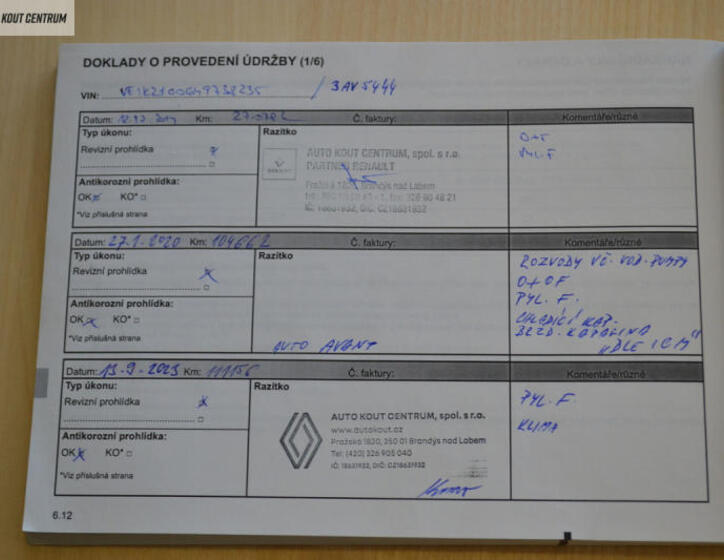 KOUT CENTRUM
DOKLADY O PROVEDENÍ ÚDRŽBY (1/6)
VIN: / 3AV5444
Datum: Km: Č. faktury: Komentáře/různé
Typ úkonu: Razítko O+F
Revizní prohlídka x AUTO KOUT CENTRUM, spol. s r.o. PYL.F
PARTNER RENAULT
Antikorozní prohlídka: Pražská 1830, Brandýs nad Labem
OK x KO*
IČ: 18631932, DIČ: CZ18631932
*Viz příslušná strana
Datum: 27.1-2020 Km: 104662 Č. faktury: Komentáře/různé
Typ úkonu: Razítko ROZVODY VČ. VOD. PUMPY
Revizní prohlídka x O+OF
PYL. F.
Antikorozní prohlídka: CHLADÍCÍ KAP.
OK x KO* BRZD. KAPALINA
*Viz příslušná strana AUTO AVANT "DLE ICM"
Datum: 13-9-2023 Km: 111156 Č. faktury: Komentáře/různé
Typ úkonu: Razítko PYL. F.
Revizní prohlídka x AUTO KOUT CENTRUM, spol. s r.o. KLIMA
www.autokout.cz
Antikorozní prohlídka: Pražská 1830, 250 01 Brandýs nad Labem
OK x KO* Tel: (420) 326 905 040
IČ: 18631932, DIČ: CZ18631932
*Viz příslušná strana
6.12